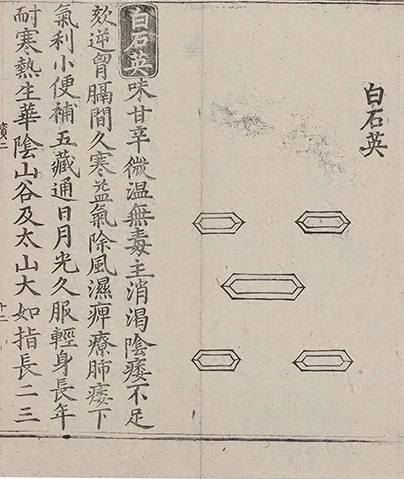 白石英
白石英味甘辛微温無毒主消渴陰痿不足
欬逆胷膈間久寒益氣除風濕痺療肺痿下
氣利小便補五藏通日月光久服輕身長年
耐寒熱生華陰山谷及太山大如指長二三